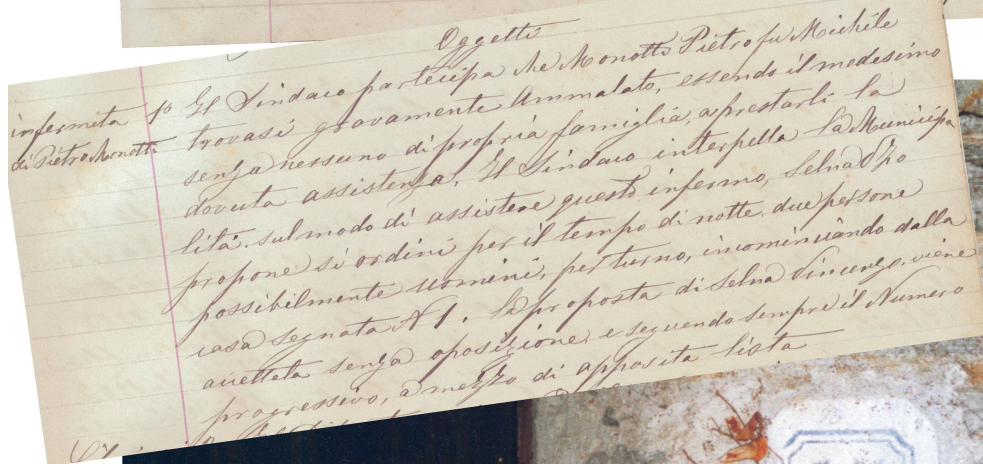 Oggetti
infermità
di Pietro Monotti
1o Il Sindaco partecipa che Monotti Pietro fu Michele
trovasi gravamente Ammalato, essendo il medesimo
senza nessuno di propria famiglia, a prestarli la
dovuta assistenza. Il Sindaco interpella la Municipa
lità sul modo di assistere questo infermo, Selna Vzo
propone si ordini per il tempo di notte due persone
possibilmente uomini, per turno, incominciando dalla
casa segnata N 1. la proposta di Selna Vincenzo, viene
accettata senza oposizione, e seguendo sempre il Numero
progressivo, a mezzo di apposita lista